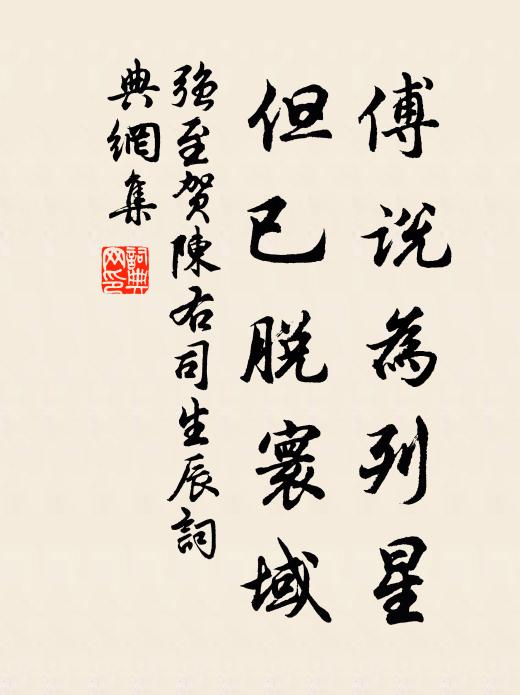 傅说為列星
但已脱寰域
強至贺陳右司生辰詞
典網集
詞典
网印